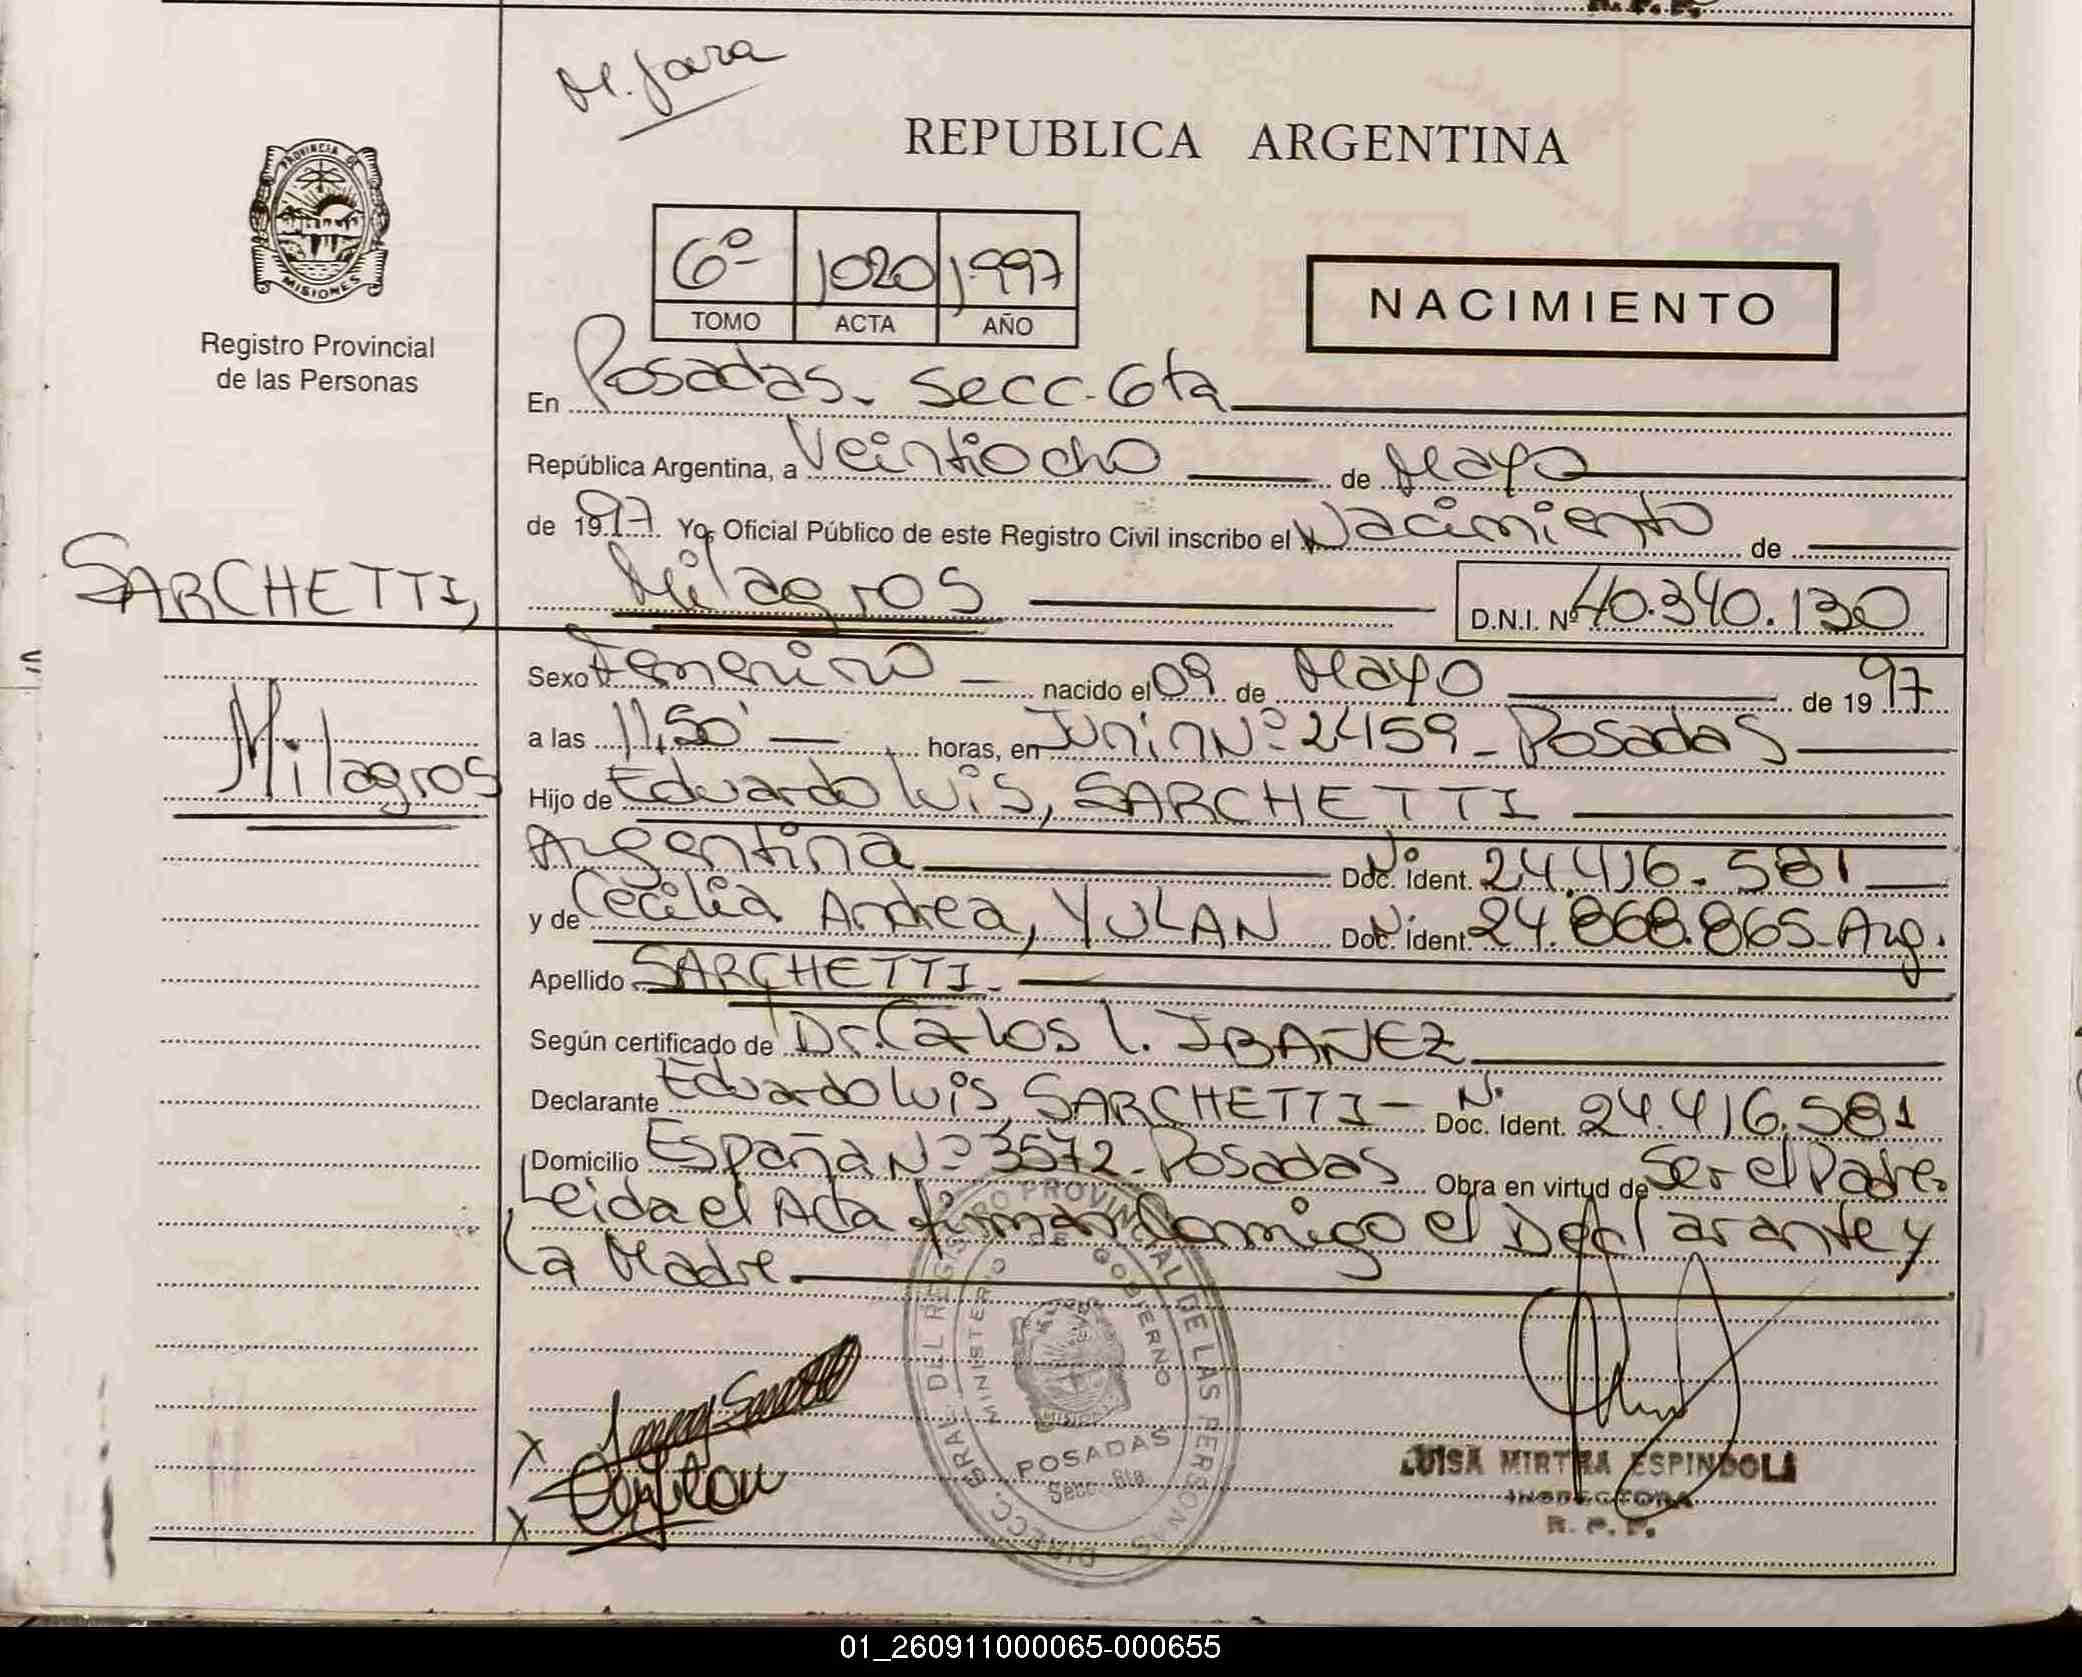 M. Jara
REPUBLICA ARGENTINA
PROVINCIA DE
MISIONES
Registro Provincial
de las Personas
6º 1020 1.997
TOMO ACTA AÑO
NACIMIENTO
En Posadas - Secc. 6ta
República Argentina, a Veintiocho de Mayo
de 1997. Yo, Oficial Público de este Registro Civil inscribo el Nacimiento de
SARCHETTI, Milagros D.N.I. Nº 40.340.130
Milagros
Sexo Femenino nacido el 09 de Mayo de 1997
a las 11,50' horas, en Junin Nº 2459 - Posadas
Hijo de Eduardo Luis, SARCHETTI
Argentina Nº Doc. Ident. 24.416.581
y de Cecilia Andrea, YULAN Nº Doc. Ident. 24.868.865 - Arg.
Apellido SARCHETTI -
Según certificado de Dr. Carlos l. IBAÑEZ
Declarante Eduardo Luis SARCHETTI - N. Doc. Ident. 24.416.581
Domicilio España Nº 3572 - Posadas Obra en virtud de Ser el Padre.
Leida el Acta firman Comigo el Declarante y
la Madre
DIRECC. GRAL. DEL REGISTRO PROVINCIAL DE LAS PERSONAS
MINISTERIO DE GOBIERNO
POSADAS
Secc. 6ta.
X
X
LUISA MIRTHA ESPINDOLA
INSPECTORA
R. P. P.
01_260911000065-000655